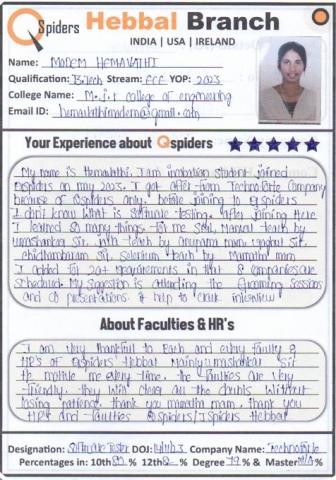 QSpiders Hebbal Branch
INDIA | USA | IRELAND
Name: MODEM HEMAVATHI
Qualification: B.Tech Stream: ECE YOP: 2023
College Name: M.J.R college of engineering
Email ID: hemavathimodem@gmail.com
Your Experience about Qspiders
My name is Hemavathi. I am incubation student joined
Qspiders on may 2023. I got offer from Technoforte Company
because of Qspiders only, before joining to Qspiders
I don't know what is software testing. after joining Here
I learned so many things. For me Manual teach by
umashankar sir. Java teach by anupama mam, sir.
chidhambaram sir. selenium teach by Mamatha mam
I added for 20+ requirements in that 8 companies are
scheduled. My suggestion is attending the Grooming sessions
and CD presentations it help to crack interview
About Faculties & HR's
I am very thankful to Each and every faculty &
HR's OF Qspiders Hebbal Mainly umashankar sir
He motive me every time. the faculties are very
friendly. they will clear all the doubts without
losing patience. thank you mamatha mam. thank you
HR's and faculties Qspiders/Jspiders Hebbal
Designation: Software Tester DOJ: Company Name: Technoforte
Percentages in: 10th % 12th % Degree 79 % & Master N/A %